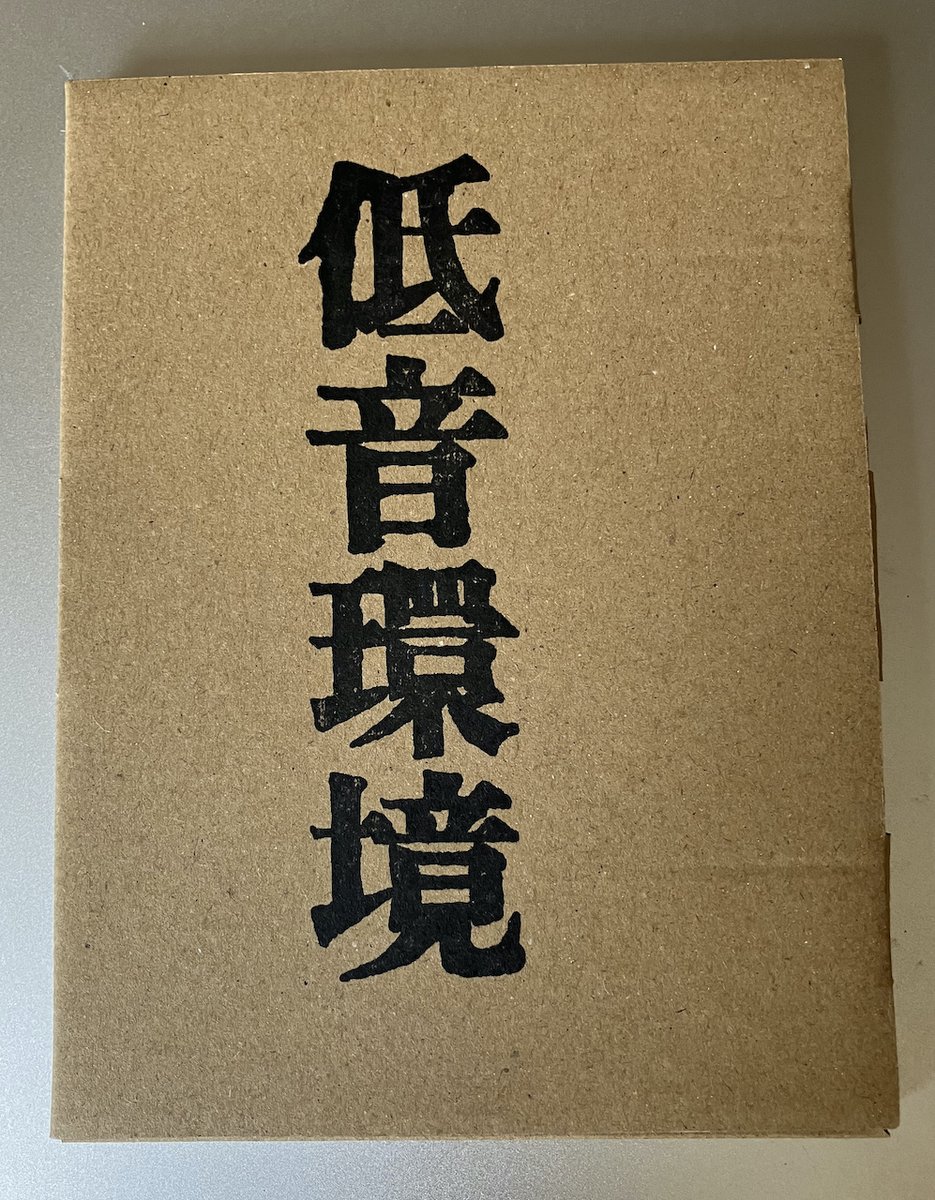 低音環境